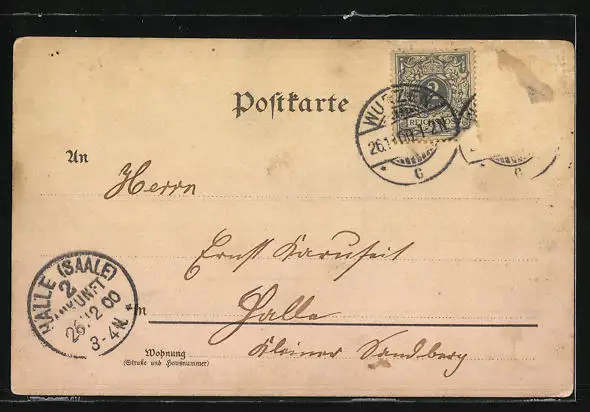 Postkarte
REICHSPOST
WURZEN
26.12.00 1-2N
C
An
Herrn
Ernst
in Halle
HALLE (SAALE)
2
ANKUNFT
26.12 00
3-4N
Wohnung
(Straße und Hausnummer)
Kleiner Sandberg